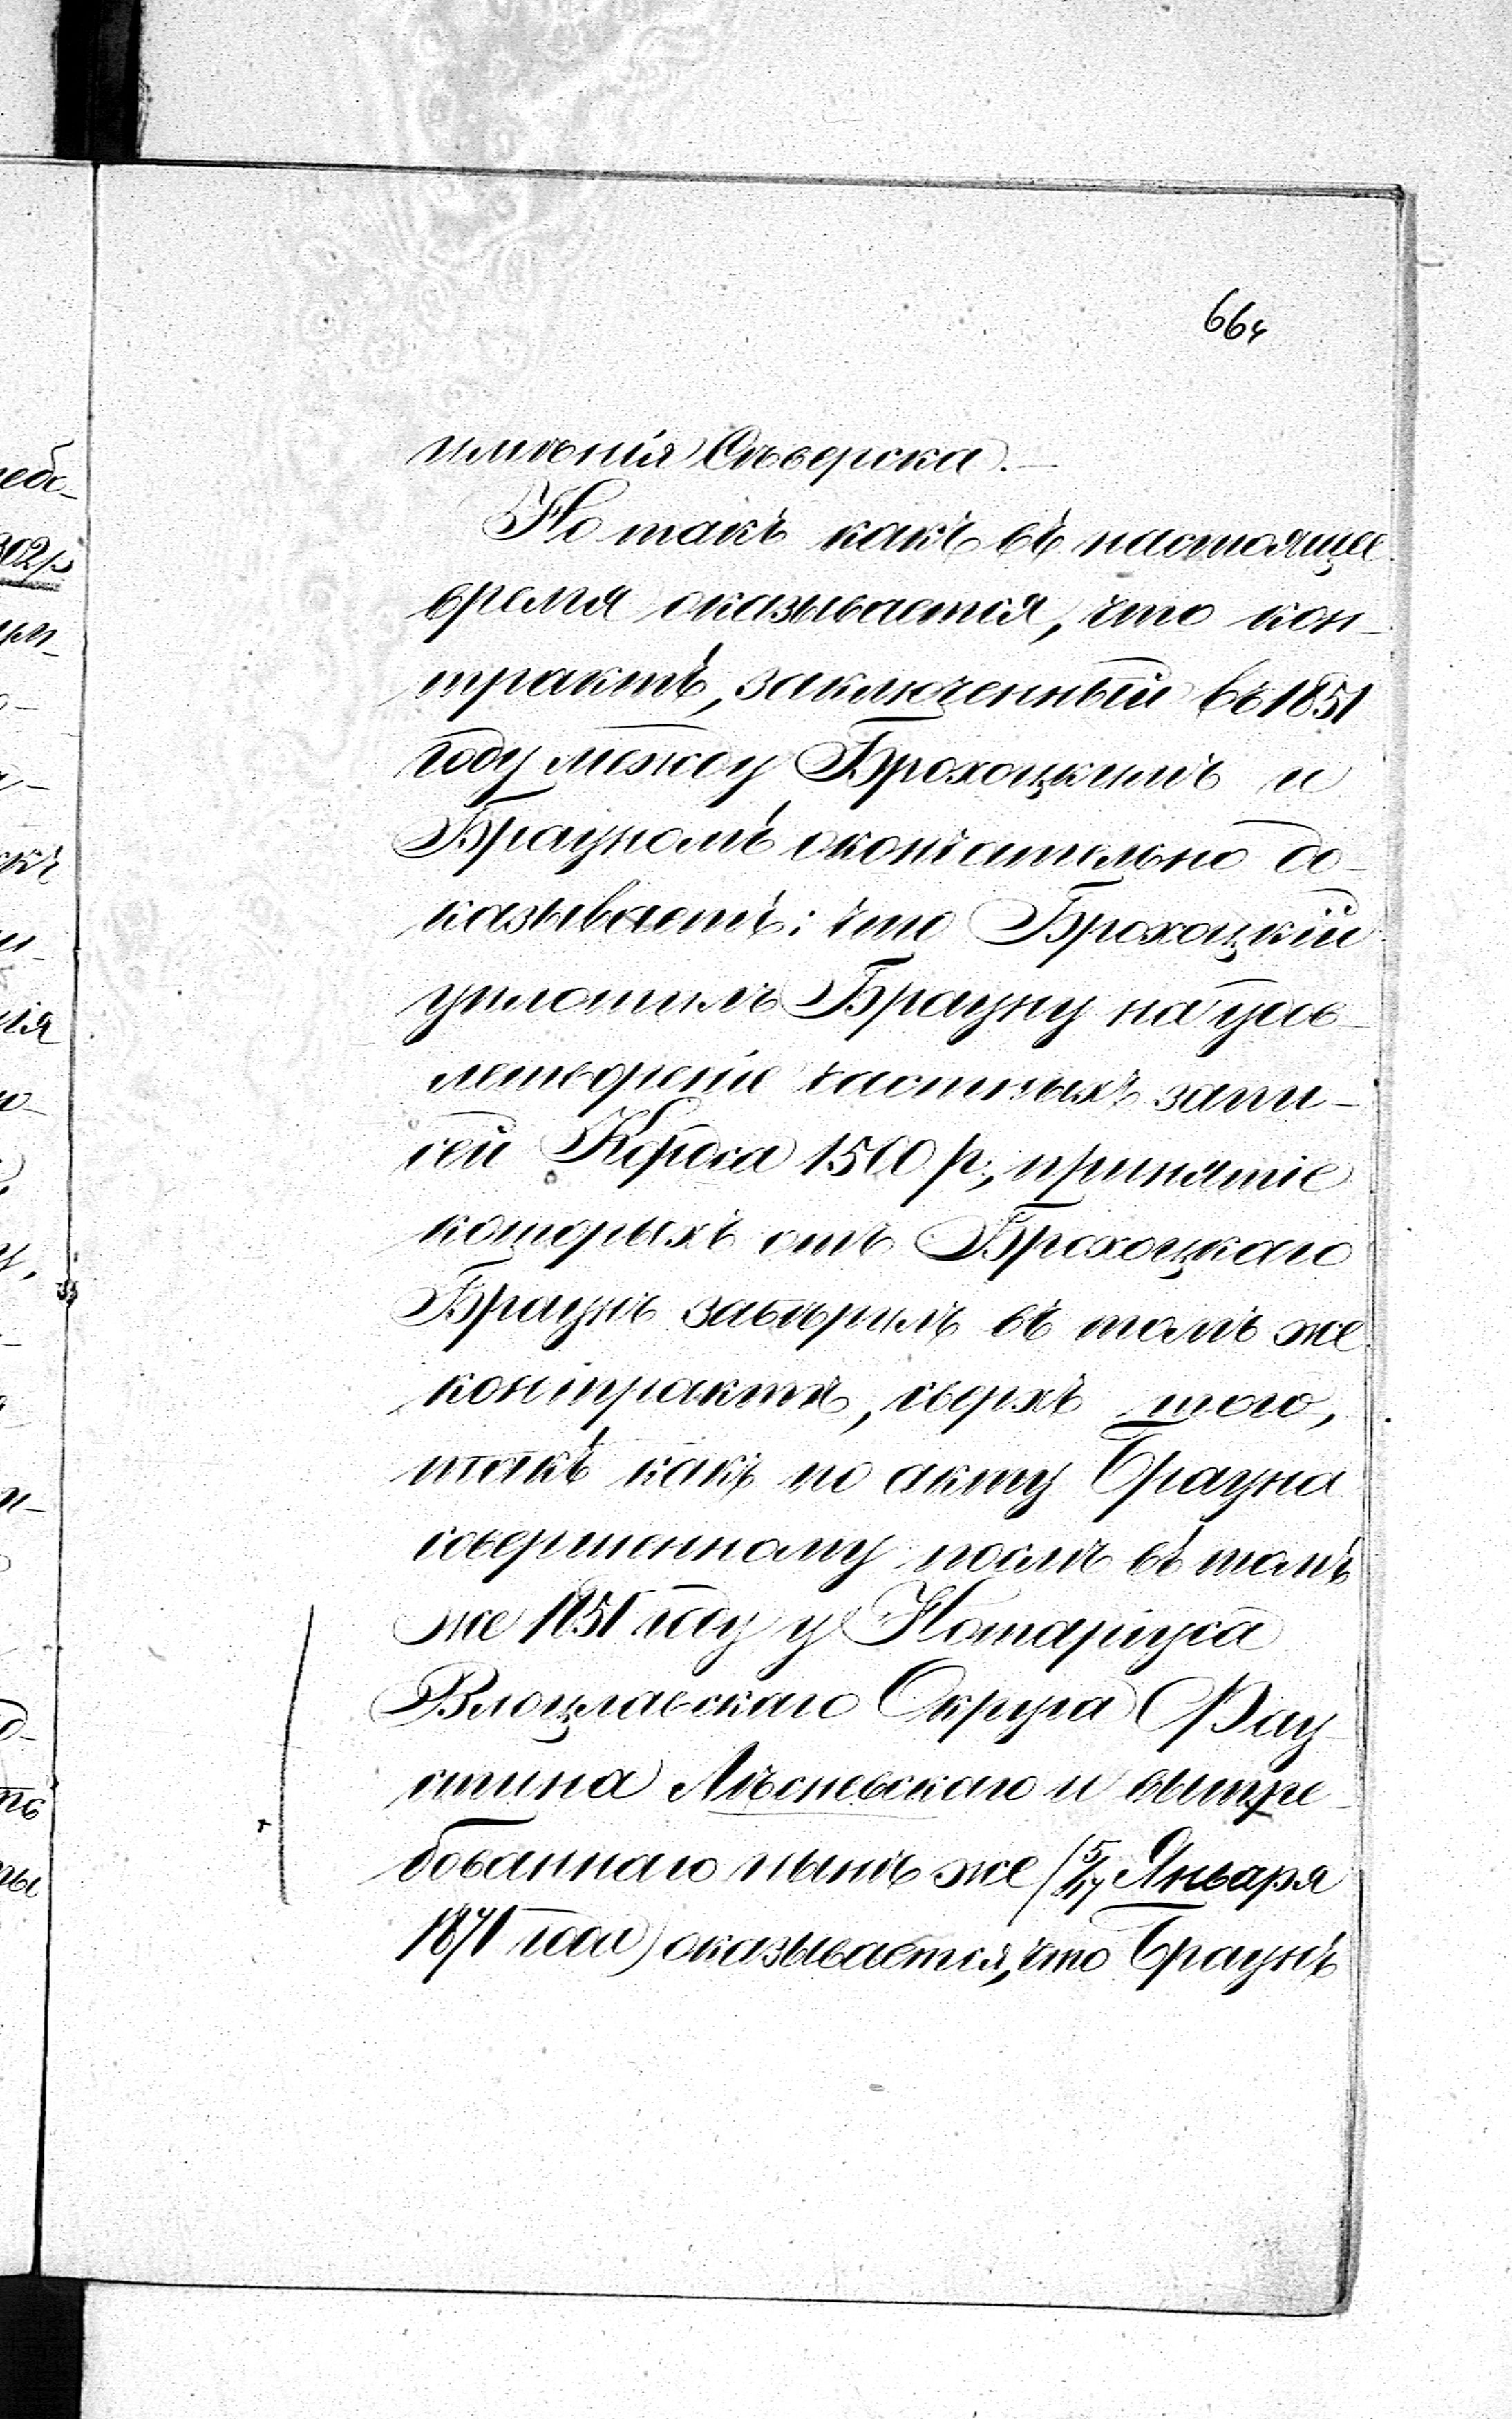 664
имѣнія Сѣверска.—
Но такъ какъ въ настоящее
время оказывается, что кон-
трактъ, заключенный въ 1851
году между Брохоцкимъ и
Брауномъ окончательно до-
казываетъ: что Брохоцкій
уплотилъ Брауну на удов-
летвореніе частныхъ запи-
сей 1500 р., принятіе
которыхъ отъ Брохоцкаго
Браунъ завѣрилъ въ томъ же
контрактѣ, сверхъ того,
такъ какъ по акту Брауна
совершенному послѣ въ томъ
же 1851 году у Нотаріуса
Влоцлавскаго Округа Фау-
стина Лѣсневскаго и вытре-
бованнаго нынѣ же (5/17 Января
1871 года) оказывается, что Браунъ